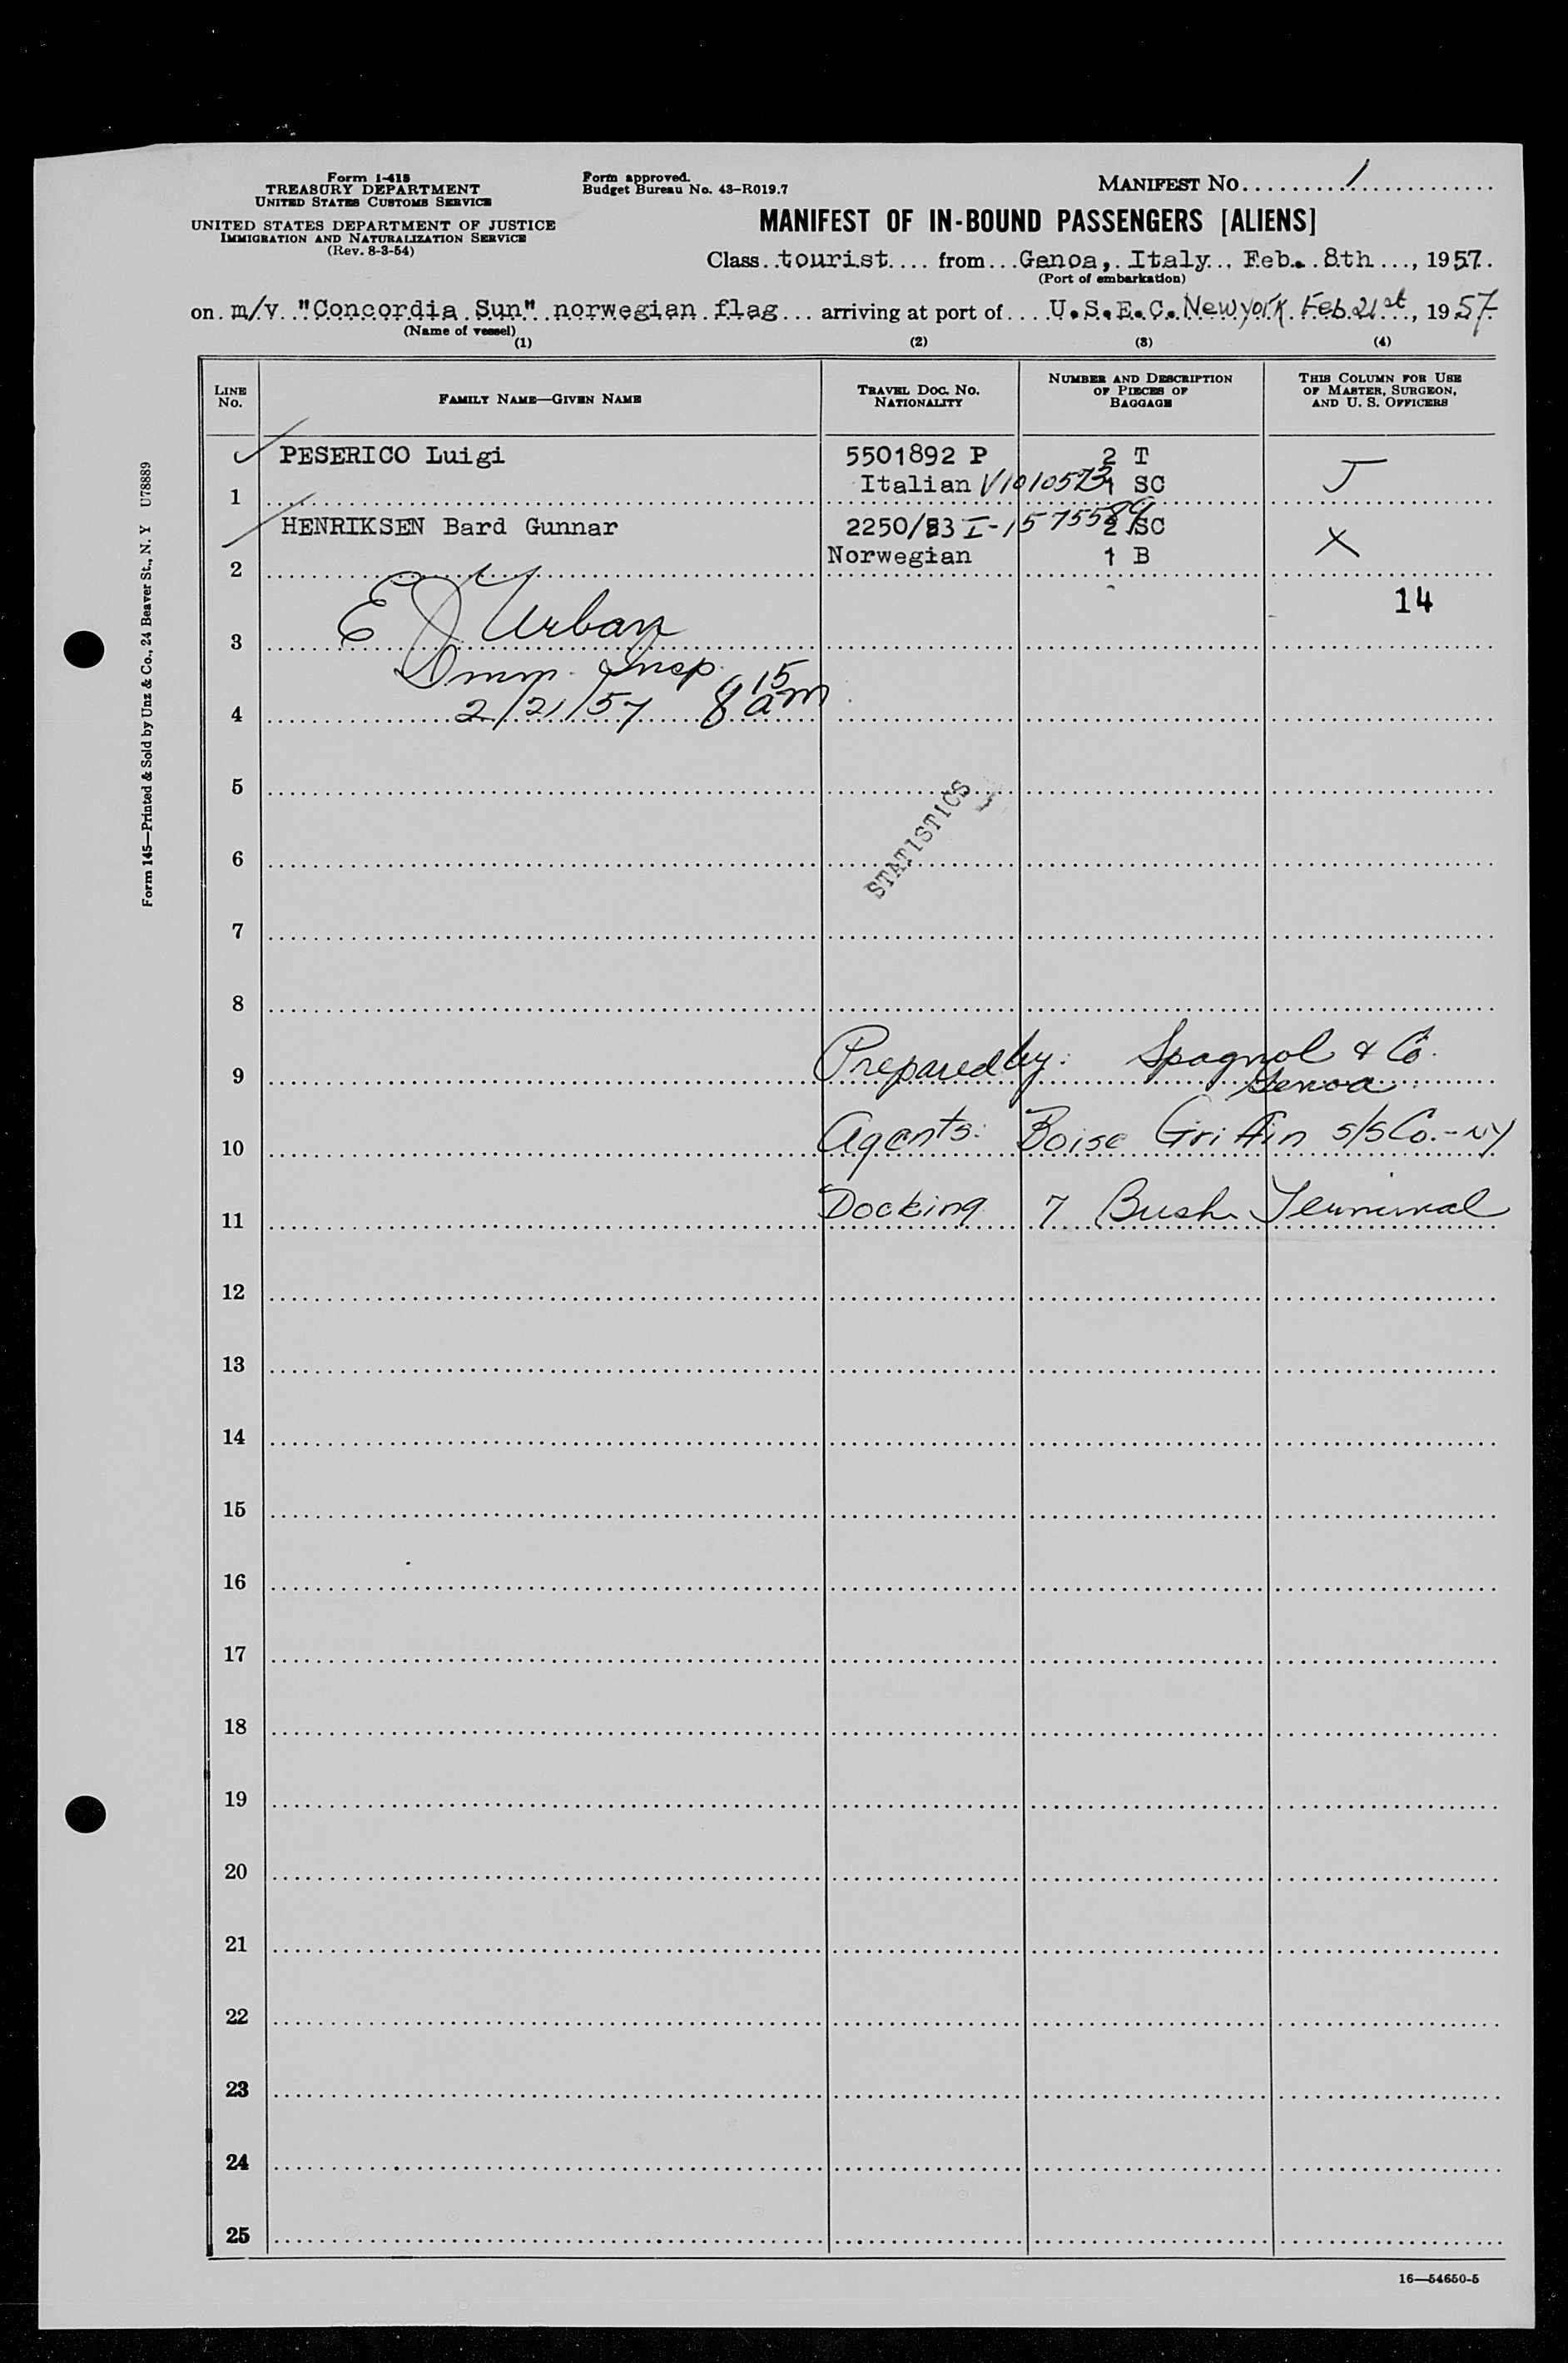 Form I-415
TREASURY DEPARTMENT
UNITED STATES CUSTOMS SERVICE
UNITED STATES DEPARTMENT OF JUSTICE
IMMIGRATION AND NATURALIZATION SERVICE
(Rev. 8-3-54)
Form approved.
Budget Bureau No. 43-R019.7
MANIFEST NO. 1
MANIFEST OF IN-BOUND PASSENGERS [ALIENS]
Class tourist from Genoa, Italy Feb. 8th, 1957.
(Port of embarkation)
on m/v "Concordia Sun" norwegian flag arriving at port of U.S.E.C. New york Feb. 21st, 1957
(Name of vessel)
(1) (2) (3) (4)
LINE NO.
FAMILY NAME—GIVEN NAME
TRAVEL DOC. NO. NATIONALITY
NUMBER AND DESCRIPTION OF PIECES OF BAGGAGE
THIS COLUMN FOR USE OF MASTER, SURGEON, AND U. S. OFFICERS
PESERICO Luigi 5501892 P 2 T
1 Italian V1010573 1 SC
HENRIKSEN Bard Gunnar 2250/53 I-1575589 2 SC X
2 Norwegian 1 B
14
3 E J Urban
Imm. Insp.
4 2/21/57 8 15 am
5
STATISTICS
6
7
8
9 Prepared by: Spagnol & Co.
Genoa
10 Agents: Boise Griffin S/S Co. - NY
11 Docking 7 Bush Terminal
12
13
14
15
16
17
18
19
20
21
22
23
24
25
16—54650-5
Form 145—Printed & Sold by Unz & Co., 24 Beaver St., N. Y U78889